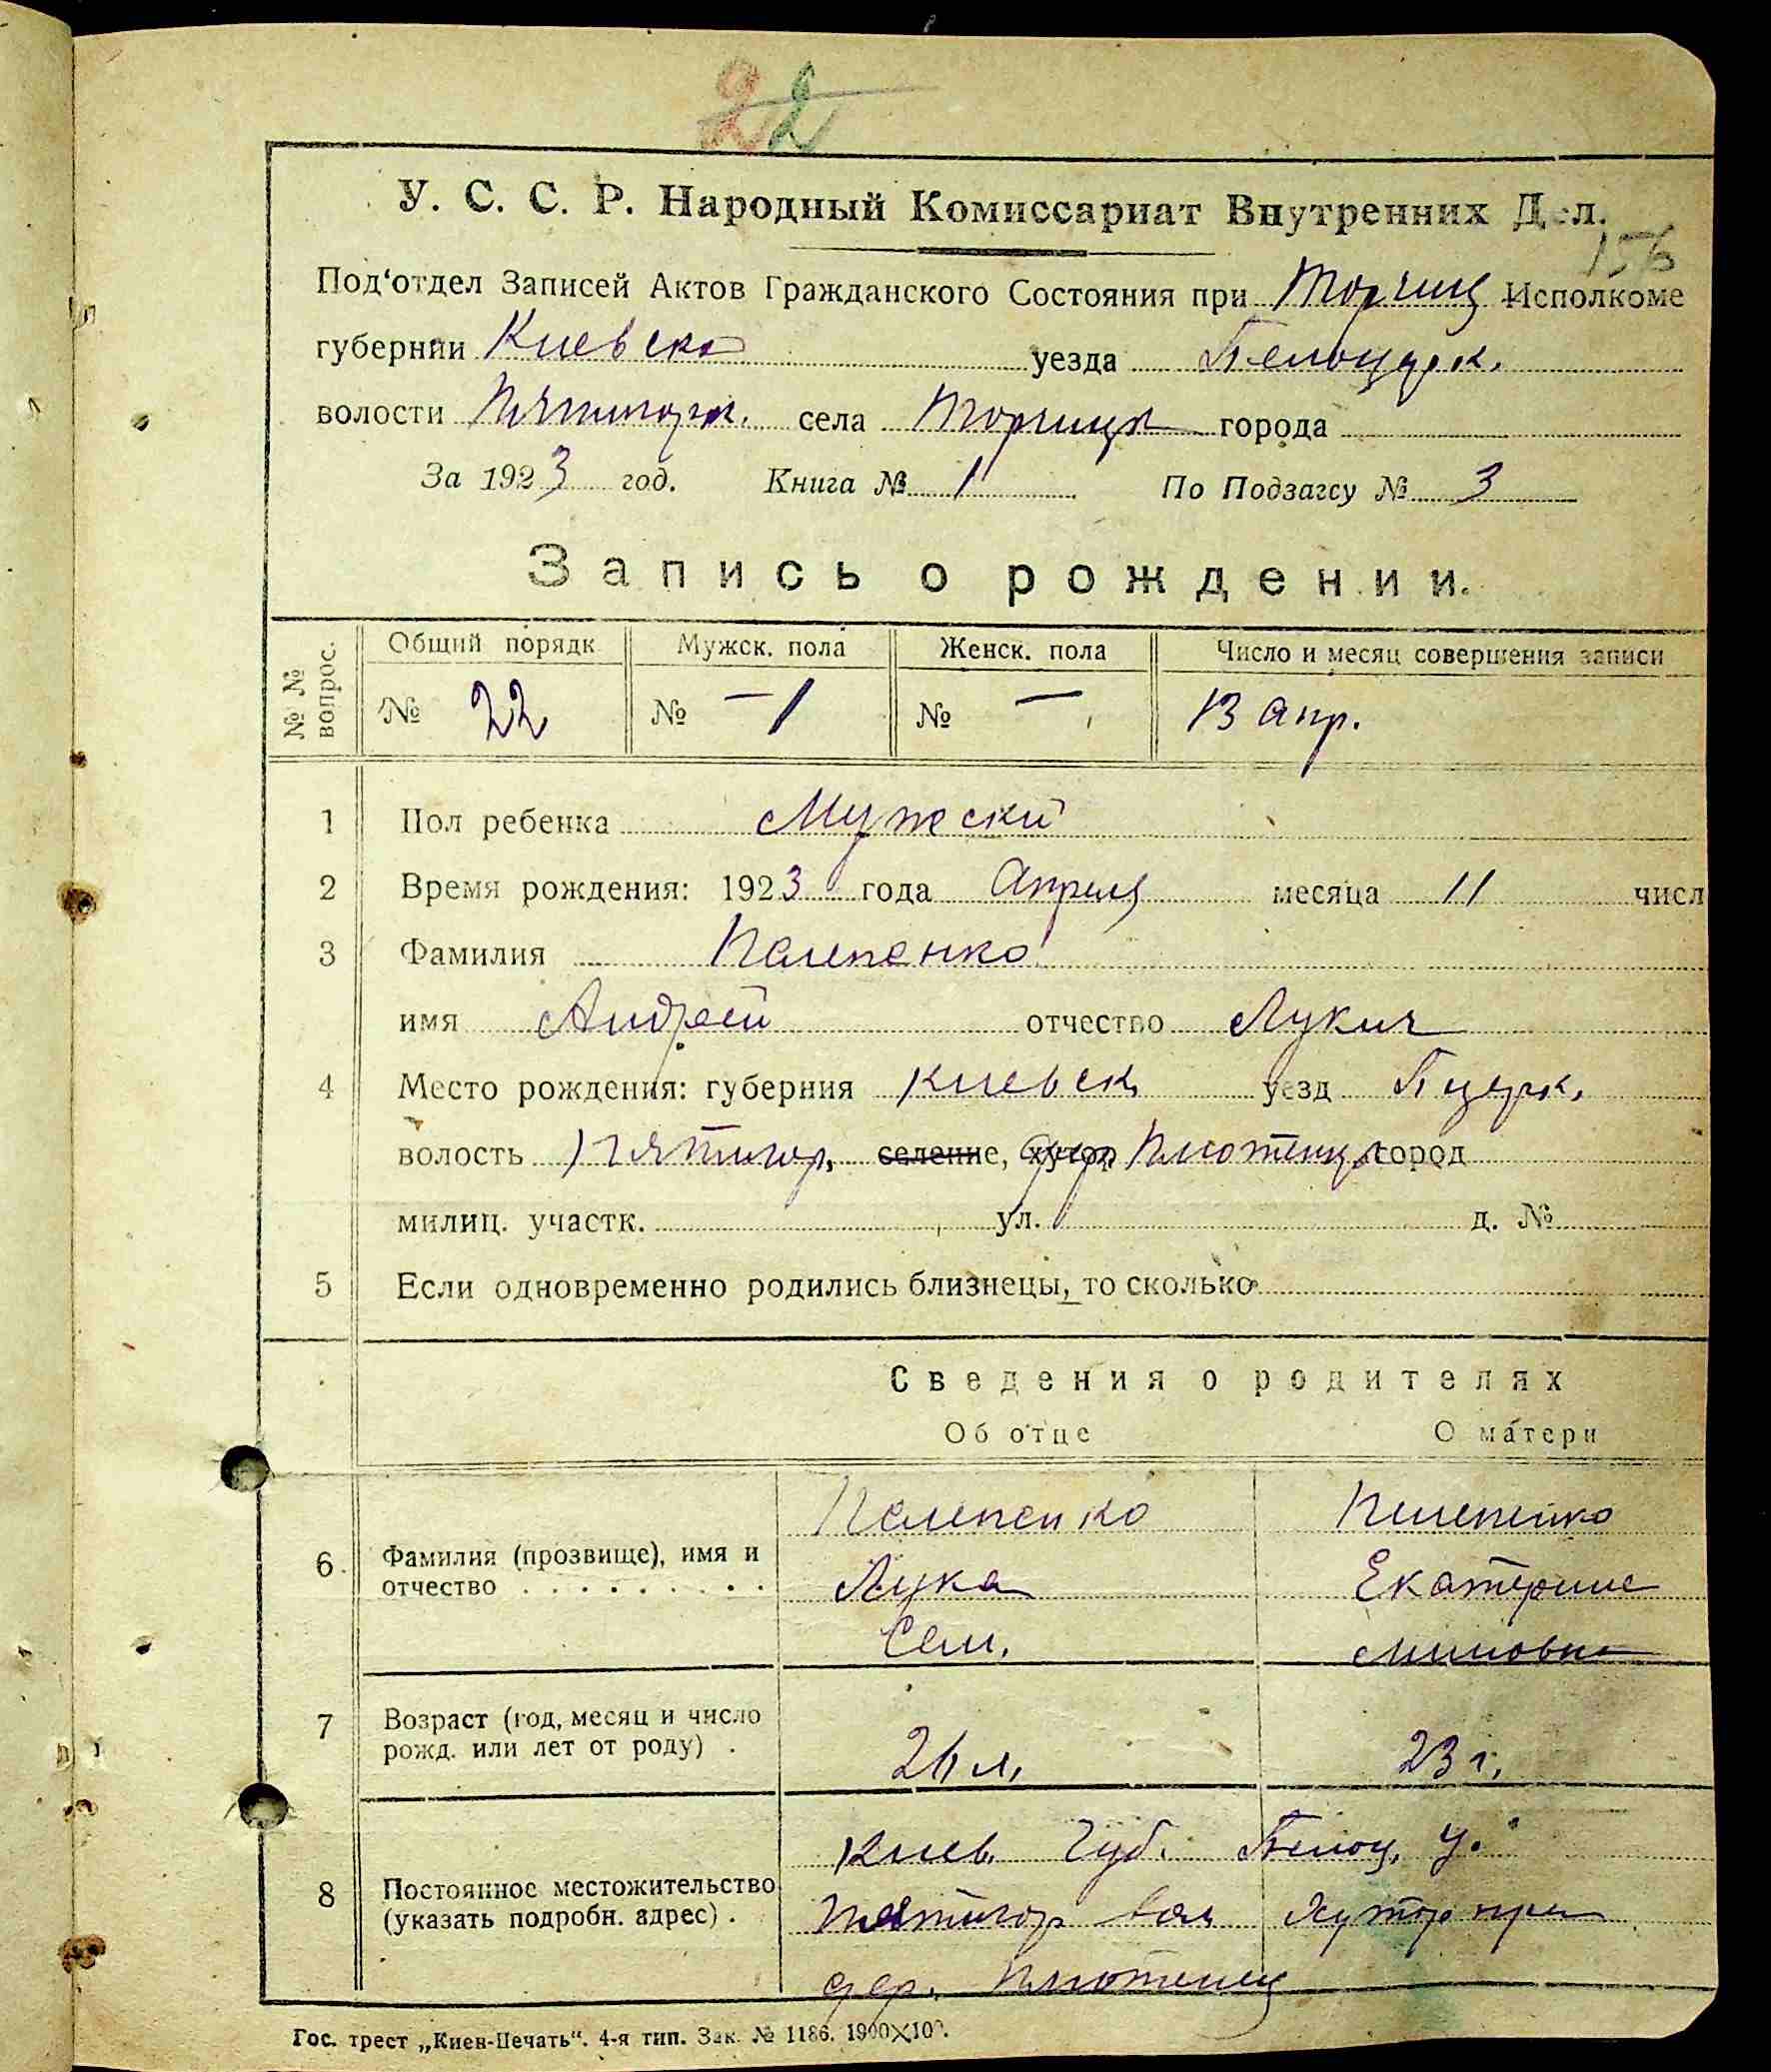 22
У. С. С. Р. Народный Комиссариат Внутренних Дел.
156
Под‘отдел Записей Актов Гражданского Состояния при Торчиц Исполкоме
губернии Киевско уезда Белоцерк.
волости Пятигорск. села Торчица города
За 1923 год. Книга № 1 По Подзагсу № 3
Запись о рождении.
№ № вопрос. Общий порядк Мужск. пола Женск. пола Число и месяц совершения записи
№ 22 № – 1 № — 13 апр.
1 Пол ребенка Мужеский
2 Время рождения: 1923 года Апреля месяца 11 числ
3 Фамилия Пелепенко
имя Андрей отчество Лукич
4 Место рождения: губерния Киевск уезд Б церк.
волость Пятигор. селение, хутор дер. город
милиц. участк. ул. д. №
5 Если одновременно родились близнецы, то сколько
Сведения о родителях
Об отце О матери
Пелепенко Пелепенко
6. Фамилия (прозвище), имя и отчество Лука Екатерина
Сем.
7 Возраст (год, месяц и число рожд. или лет от роду) . 26 л. 23 г.
Киев. Губ. Белоц. у.
8 Постоянное местожительство (указать подробн. адрес) . Пятигор вол Хутор при
дер.
Гос. трест „Киев-Печать“. 4-я тип. Зак. № 1186. 1900×100.